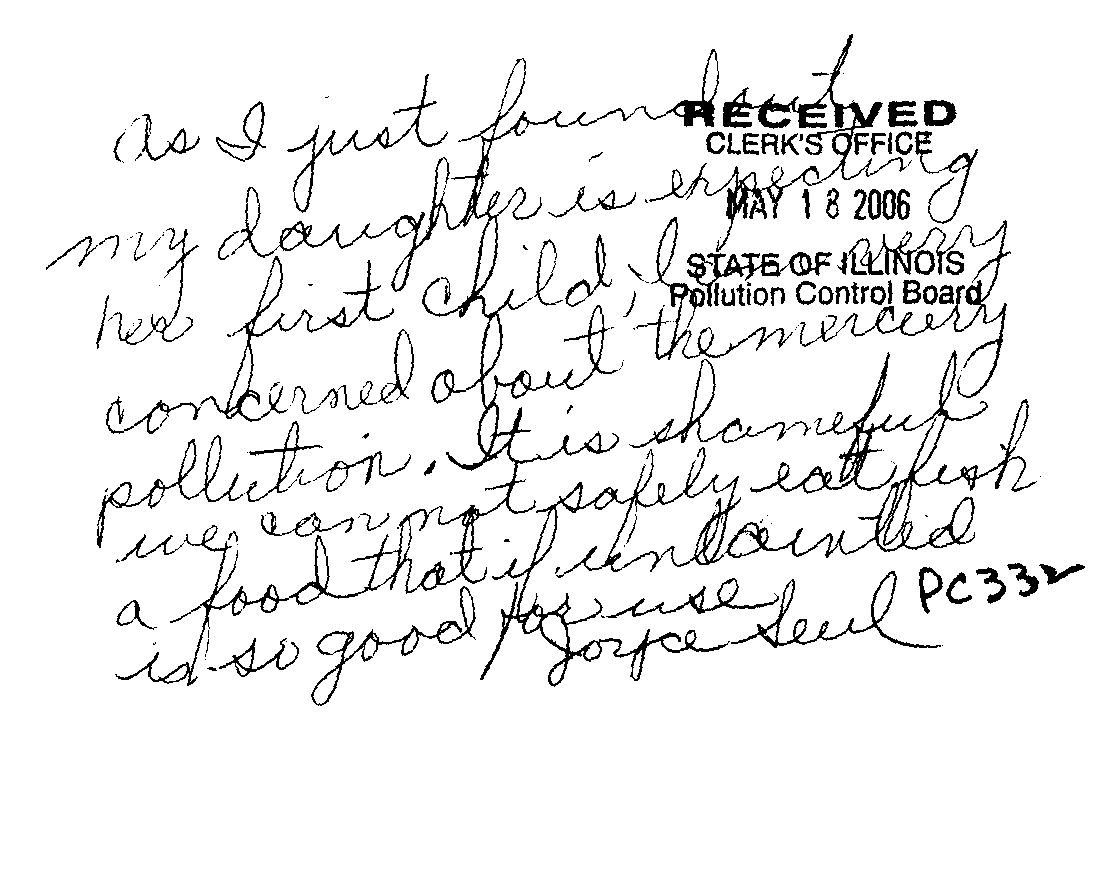 as I just found out
RECEIVED
CLERK'S OFFICE
my daughter is expecting
MAY 18 2006
her first child, I am very
STATE OF ILLINOIS
Pollution Control Board
concerned about the mercury
pollution. It is shameful
we can not safely eat fish
a food that if untainted
PC332
is so good for use
Joyce Seul